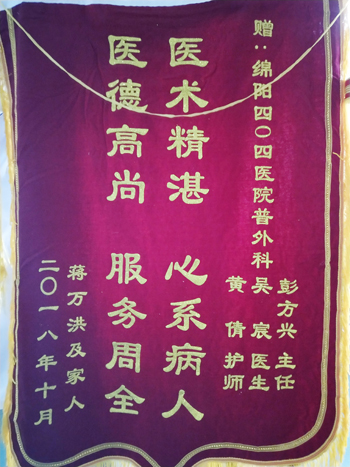 赠：绵阳四〇四医院普外科
彭方兴 主任
吴宸 医生
黄倩 护师
医术精湛 心系病人
医德高尚 服务周全
蒋万洪及家人
二〇一八年十月